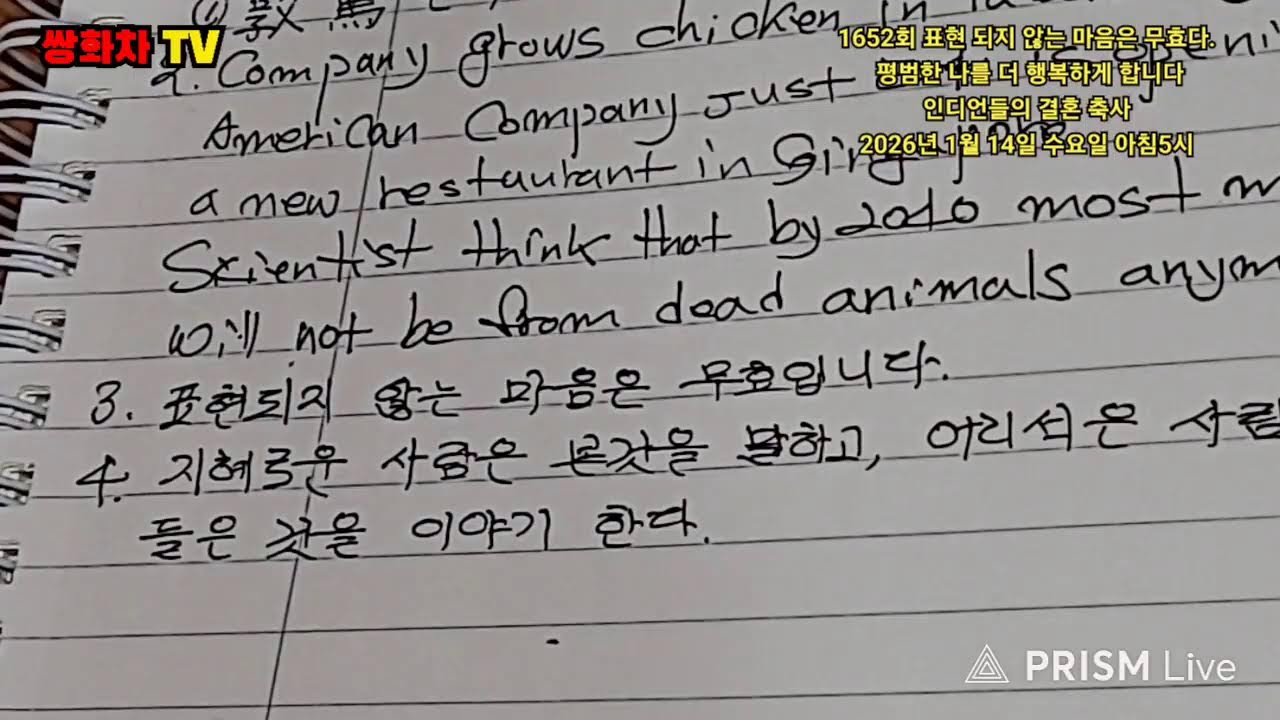 쌍화차 TV
1652회 표현 되지 않는 마음은 무효다.
평범한 나를 더 행복하게 합니다
인디언들의 결혼 축사
2026년 1월 14일 수요일 아침5시
2. Company grows chicken in
American Company Just
a new restaurant in
Scientist think that by 2040 most
will not be from dead animals
3. 표현되지 않는 마음은 무효입니다.
4. 지혜로운 사람은 본것을 말하고, 어리석은 사람
들은 것을 이야기 한다.
PRISM Live